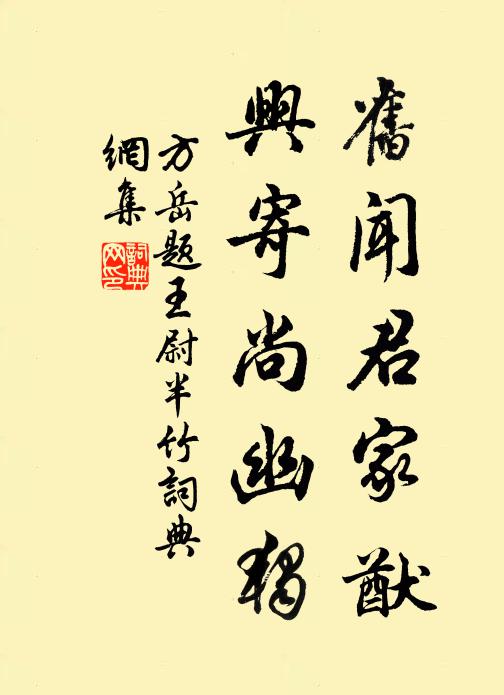 舊聞君家猷
興寄尚幽獨
方岳題王尉半竹詞典
網集
詞典网印